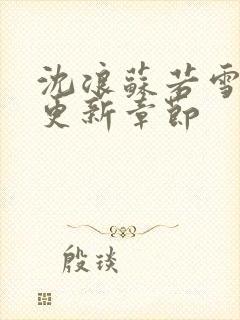 沈浪蘇若雪
更新章節
殷琰